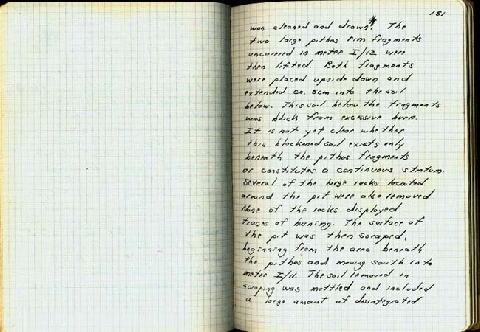 181
was cleaned and drawn. The
two large pithos rim fragments
uncovered in meter I/12 were
then lifted. Both fragments
were placed upside down and
extended ca. 5cm into the soil
below. This soil below the fragments
was black from excessive burn.
It is not yet clear whether
this blackened soil exists only
beneath the pithos fragments
or constitutes a continuous stratum.
Several of the large rocks located
around the pit were also removed
of the rocks displayed
traces of burning. The surface of
the pit was then scraped,
beginning from the area beneath
the pithos and moving south into
meter I/11. The soil removed in
scraping was mottled and included
a large amount of disintegrated